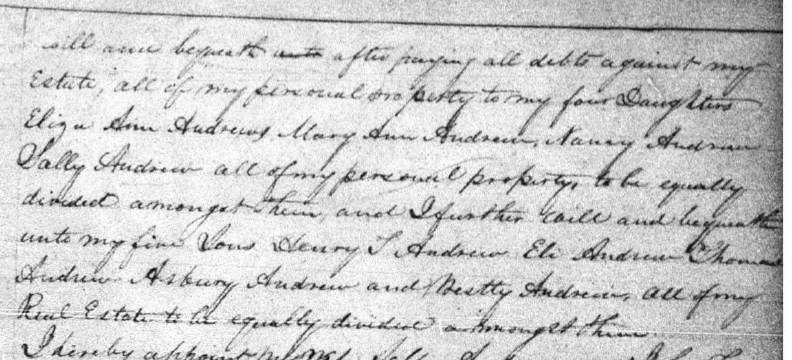 will and bequeath unto after paying all debts against my
Estate, all of my personal property to my four Daughters
Eliza Ann Andrews, Mary Ann Andrew, Nancy Andrew
Sally Andrew all of my personal property, to be equally
divided amongst them, and I further will and bequeath
unto my five Sons Henry T Andrew Eli Andrew Thomas
Andrew Asbury Andrew and Westly Andrew, all of my
Real Estate to be equally divided amongst them.
I hereby appoint